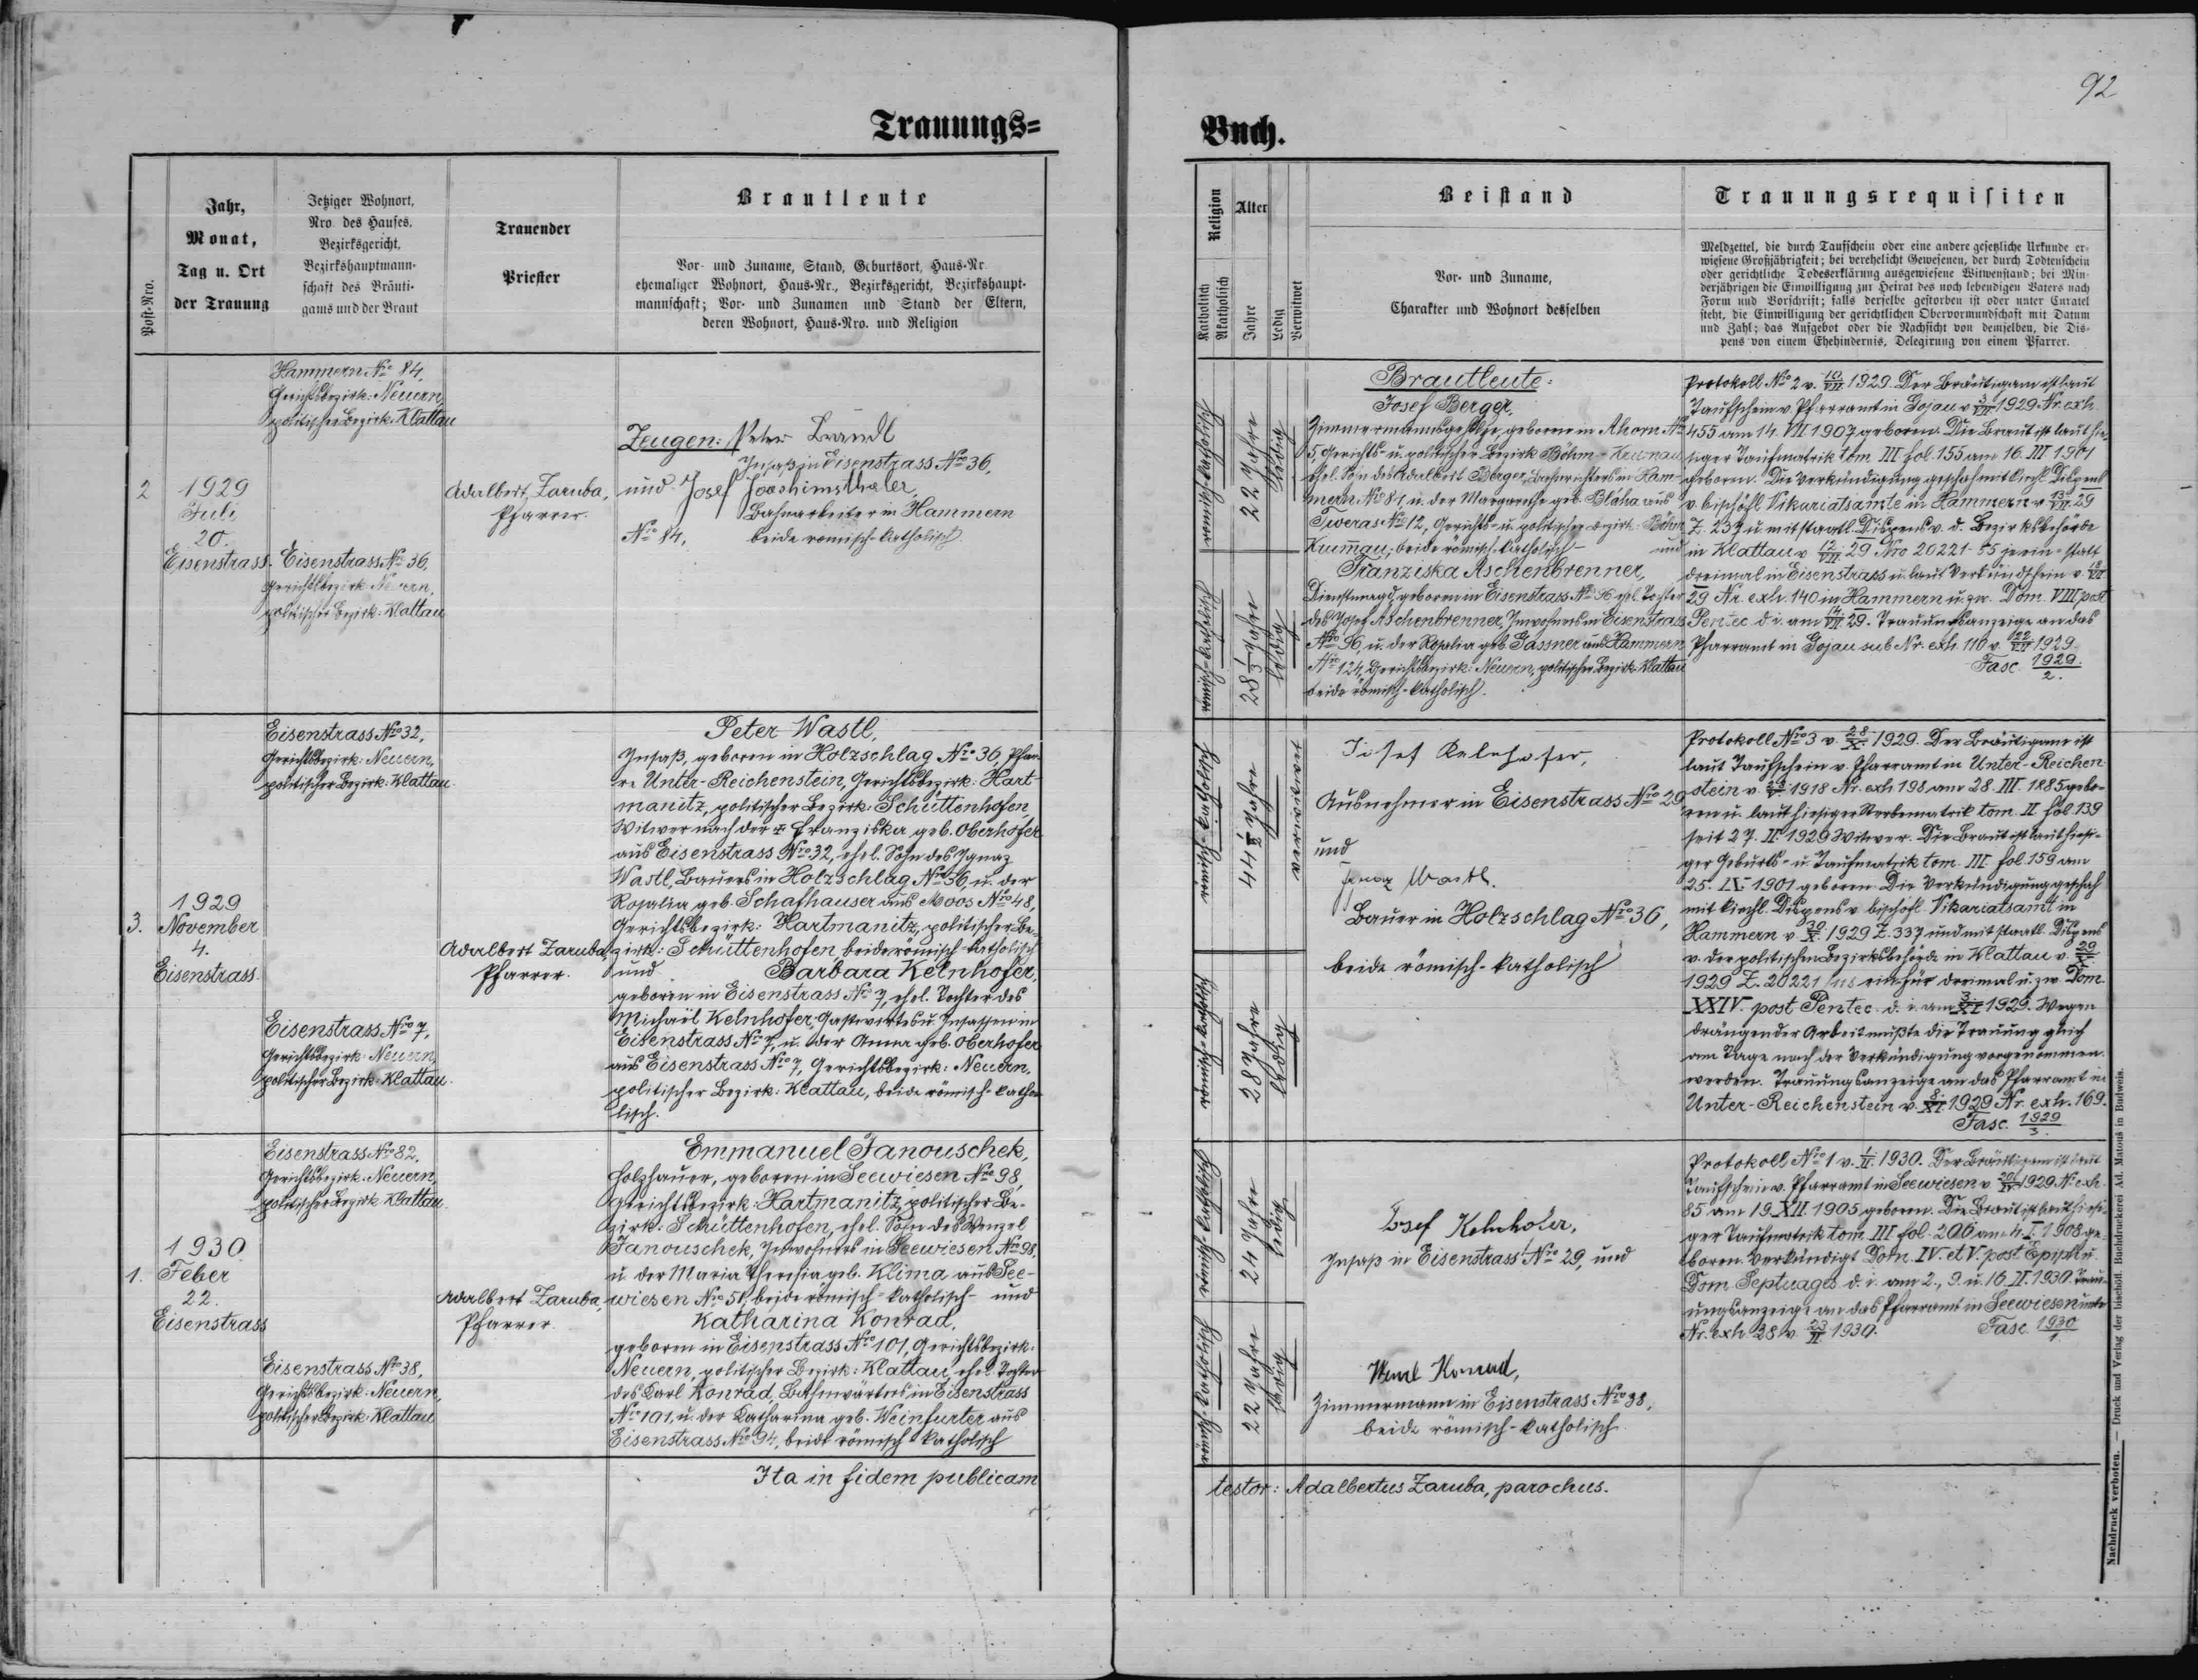 92
Trauungs=
Buch.
Post-Nro.
Jahr,
Monat,
Tag u. Ort
der Trauung
Jetziger Wohnort,
Nro des Hauses,
Bezirksgericht,
Bezirkshauptmann-
schaft des Bräuti-
gams und der Braut
Trauender
Priester
Brautleute
Vor- und Zuname, Stand, Geburtsort, Haus-Nr.
ehemaliger Wohnort, Haus-Nr., Bezirksgericht, Bezirkshaupt-
mannschaft; Vor- und Zunamen und Stand der Eltern,
deren Wohnort, Haus-Nro. und Religion
Religion
Katholisch
Akatholisch
Alter
Jahre
Ledig
Verwitwet
Beistand
Vor- und Zuname,
Charakter und Wohnort desselben
Trauungsrequisiten
Meldzettel, die durch Taufschein oder eine andere gesetzliche Urkunde er-
wiesene Großjährigkeit; bei verehelicht Gewesenen, der durch Todtenschein
oder gerichtliche Todeserklärung ausgewiesene Witwenstand; bei Min-
derjährigen die Einwilligung zur Heirat des noch lebendigen Vaters nach
Form und Vorschrift; falls derselbe gestorben ist oder unter Curatel
steht, die Einwilligung der gerichtlichen Obervormundschaft mit Datum
und Zahl; das Aufgebot oder die Nachsicht von demselben, die Dis-
pens von einem Ehehindernis, Delegirung von einem Pfarrer.
2
1929
Juli
20.
Eisenstrass.
Hammern No 84,
Gerichtsbezirk: Neuern,
politischer Bezirk: Klattau
Eisenstrass No 36,
Gerichtsbezirk Neuern,
politischer Bezirk: Klattau
Adalbert Zaruba,
Pfarrer.
Zeugen: Peter Brandl
Insaß in Eisenstrass No 36,
und Josef Joachimsthaler,
Bahnarbeiter in Hammern
No 84, beide römisch-katholisch
römisch-katholisch
22 Jahre
ledig
römisch-katholisch
28 1/3 Jahre
ledig
Brautleute:
Josef Berger,
Zimmermannsgehilfe, geboren in Ahorn No
5, Gerichts- u. politischer Bezirk Böhm-Krumau
ehel. Sohn des Adalbert Berger, in Ham-
mern No 84, u. der Margarethe geb. Bláha aus
Tweras No 12, Gerichts- u. politischer Bezirk: Böhm
Krummau, beide römisch-katholisch – und
Franziska Aschenbrenner,
Dienstmagd, geboren in Eisenstrass No 96 ehel. Tochter
des Josef Aschenbrenner, Inwohners in Eisenstrass
No 96, u. der Rosalia geb. Gassner aus Hammern
No 124, Gerichtsbezirk: Neuern, politischer Bezirk Klattau
beide römisch-katholisch.
Protokoll No 2 v. 10/VII 1929. Der Bräutigam ist laut
Taufschein v. Pfarramt in Gojau v. 3/VII 1929 Nr. exh.
455 am 14. VII 1907 geboren. Die Braut ist laut hie-
siger Taufmatrik tom. III fol. 155 am 16. III. 1901
geboren. Die Verkündigung geschah mit kirchl. Dispens
v. bischöfl. Vikariatsamte in Hammern v. 13/VII 29
Z. 237 u. mit staatl. Dispens v. d. Bezirksbehörde
in Klattau v. 12/VII 29 Nro 20221-85 je ein- statt
dreimal in Eisenstrass u. laut Verkündschein v.
29 Nr. exh. 140 in Hammern u. zw. Dom. VIII post
Pentec. d. i. am 14/VII 29. Trauungsanzeige an das
Pfarramt in Gojau sub Nr. exh. 110 v. 22/VII 1929.
Fasc. 1929/2.
3.
1929
November
4.
Eisenstrass
Eisenstrass No 32,
Gerichtsbezirk: Neuern,
politischer Bezirk: Klattau
Eisenstrass No 7,
Gerichtsbezirk: Neuern
politischer Bezirk: Klattau.
Adalbert Zaruba,
Pfarrer.
Peter Wastl,
Insaß, geboren in Holzschlag No 36, Pfar-
re Unter-Reichenstein, Gerichtsbezirk: Hart-
manitz, politischer Bezirk: Schüttenhofen,
Witwer nach der † Franziska geb. Oberhofer
aus Eisenstrass No 32, ehel. Sohn des Ignaz
Wastl, Bauers in Holzschlag No 36, u. der
Rosalia geb. Schafhauser aus Moos No 48,
Gerichtsbezirk: Hartmanitz, politischer Be-
zirk: Schüttenhofen, beide römisch-katholisch
und Barbara Kelnhofer,
geboren in Eisenstrass No 7, ehel. Tochter des
Michael Kelnhofer, Gastwirtes u. Insassen in
Eisenstrass No 7, u. der Anna geb. Oberhofer
aus Eisenstrass No 7, Gerichtsbezirk: Neuern,
politischer Bezirk: Klattau, beide römisch-katho-
lisch.
römisch-katholisch
44 Jahre
verwitwet
römisch-katholisch
28 Jahre
ledig
Josef Kelnhofer,
Ausnehmer in Eisenstrass No 29
und
Ignaz Wastl.
Bauer in Holzschlag No 36,
beide römisch-katholisch
Protokoll No 3 v. 28/X 1929. Der Bräutigam ist
laut Taufschein v. Pfarramt in Unter-Reichen-
stein v. 1918 Nr. exh 198 am 28. III. 1885 gebo-
ren u. laut hiesiger Sterbematrik tom. II fol 139
seit 27. II 1929 Witwer. Die Braut ist laut hiesi-
ger Geburts- u. Taufmatrik tom. III fol. 159 am
25. IX. 1901 geboren. Die Verkündigung geschah
mit kirchl. Dispens v. bischöfl. Vikariatsamt in
Hammern v. 30/X 1929 Z. 337 und mit staatl. Dispens
v. der politischen Bezirksbehörde in Klattau v. 29/X
1929 Z. 20221 ein- für dreimal u. zw. Dom.
XXIV. post Pentec. d. i. am 3/XI 1929. Wegen
drängender Arbeit mußte die Trauung gleich
am Tage nach der Verkündigung vorgenommen
werden. Trauungsanzeige an das Pfarramt in
Unter-Reichenstein v. 8/XI 1929 Nr. exh. 169.
Fasc. 1929/3.
1.
1930
Feber
22.
Eisenstrass
Eisenstrass No 82,
Gerichtsbezirk: Neuern,
politischer Bezirk: Klattau.
Eisenstrass No 38,
Gerichtsbezirk: Neuern,
politischer Bezirk: Klattau
Adalbert Zaruba,
Pfarrer.
Emmanuel Janouschek,
Holzhauer, geboren in Seewiesen No 98,
Gerichtsbezirk: Hartmanitz, politischer Be-
zirk: Schüttenhofen, ehel. Sohn des Wenzel
Janouschek, Inwohners in Seewiesen No 98,
u. der Maria Theresia geb. Klima aus See-
wiesen No 51, beide römisch-katholisch – und
Katharina Konrad,
geboren in Eisenstrass No 101, Gerichtsbezirk:
Neuern, politischer Bezirk: Klattau, ehel. Tochter
des Karl Konrad, Bahnwärters in Eisenstrass
No 101, u. der Katharina geb. Weinfurter aus
Eisenstrass No 94, beide römisch-katholisch
römisch-katholisch
24 Jahre
ledig
römisch-katholisch
22 Jahre
ledig
Josef Kelnhofer,
Insaß in Eisenstrass No 29, und
Konrad,
Zimmermann in Eisenstrass No 38,
beide römisch-katholisch
Protokoll No 1 v. 1/II. 1930. Der Bräutigam ist laut
Taufschein v. Pfarramt in Seewiesen v. 1929 No exh.
85 am 19. XII 1905 geboren. Die Braut ist laut hiesi-
ger Taufmatrik tom. III fol. 206 am 4. I. 1908 ge-
boren. Verkündigt Dom. IV. et V. post Epiph. u.
Dom. Septuages. d. i. am 2., 9. u. 16. II. 1930. Trau-
ungsanzeige an das Pfarramt in Seewiesen unter
Nr. exh. 28 v. 23/II 1930. Fasc. 1930/1.
Ita in fidem publicam
testor: Adalbertus Zaruba, parochus.
Nachdruck verboten. — Druck und Verlag der bischöfl. Buchdruckerei Ad. Matouš in Budweis.